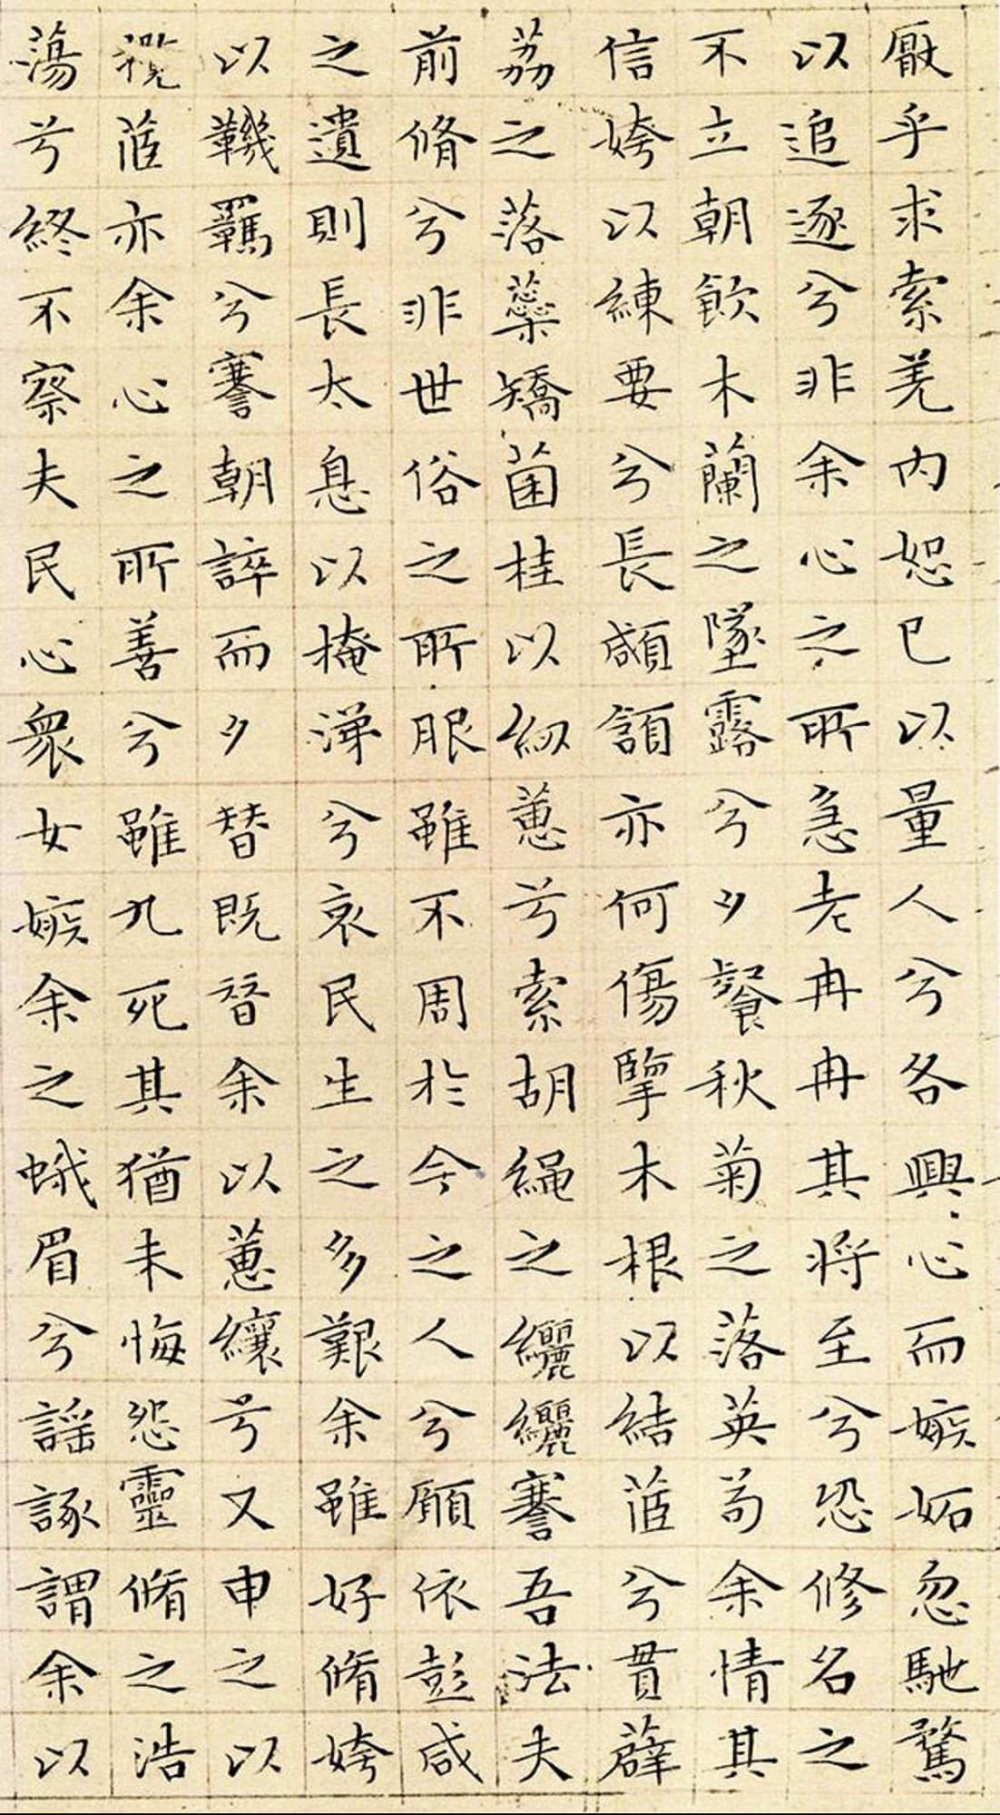 厭乎求索羌内恕已以量人兮各興心而嫉妬忽馳騖
以追逐兮非余心之所急老冉冉其將至兮恐修名之
不立朝飲木蘭之墜露兮夕餐秋菊之落英苟余情其
信姱以練要兮長顑頷亦何傷擥木根以結茝兮貫薜
荔之落蘂矯菌桂以紉蕙兮索胡繩之纚纚謇吾法夫
前脩兮非世俗之所服雖不周於今之人兮願依彭咸
之遺則長太息以掩涕兮哀民生之多艱余雖好脩姱
以鞿羈兮謇朝誶而夕替既替余以蕙纕兮又申之以
攬茝亦余心之所善兮雖九死其猶未悔怨靈脩之浩
蕩兮終不察夫民心眾女嫉余之蛾眉兮謠諑謂余以